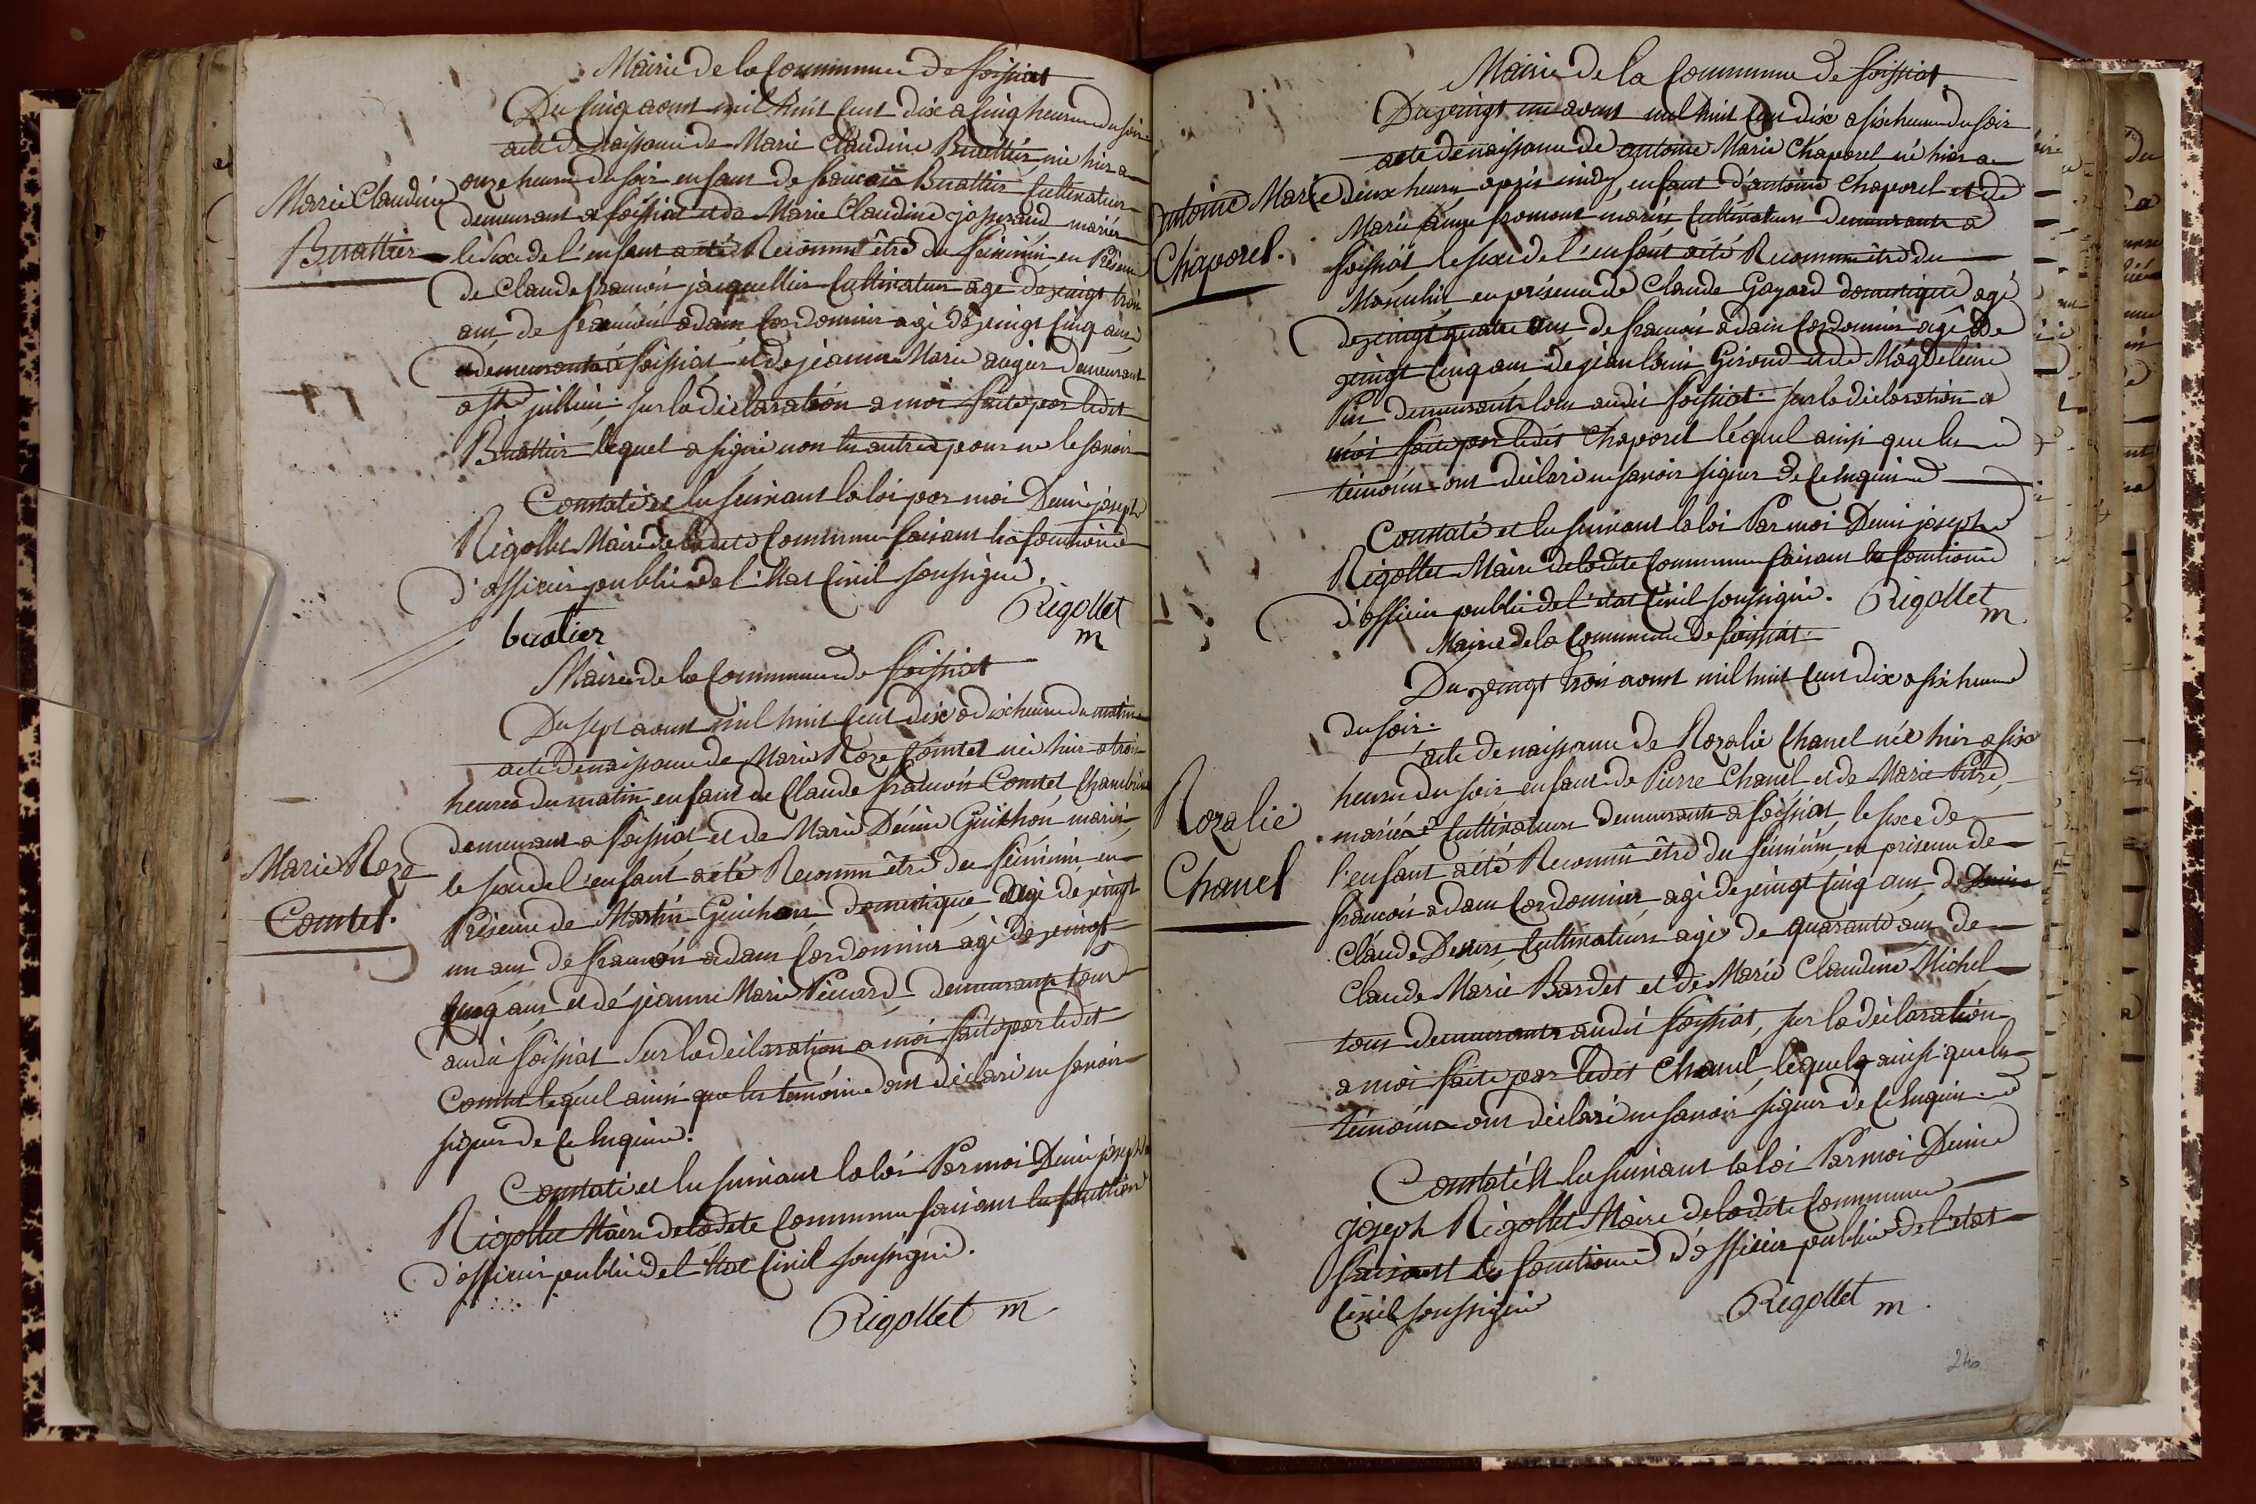 Mairie de la Commune de foissiat
Du cinq aoust mil huit cent dix a cinq heures du soir
acte de naissance de Marie Claudine Buattier née hier a
Marie Claudine
Buattier
onze heures du soir enfant de francois Buattier cultivateur
demeurant a foissiat et de Marie Claudine josserand mariés
le sexe de l'enfant a été Reconnu être du féminin en Présence
de Claude francois jacquellin cultivateur agé de vingt trois
ans de francois adam Cordonnier agé de vingt cinq ans
demeurants a foissiat et de jeanne Marie augier demeurant
a st jullien sur la déclaration a moi faite par ledit
Buattier lequel a signé non les autres pour ne le savoir
Constaté et lu suivant la loi par moi Denis joseph
Rigollet Maire de ladite Commune faisant les fonctions
d'officier public de l'état Civil soussigné.
buatier
Rigollet
m
Mairie de la Commune de foissiat
Du sept aoust mil huit cent dix a dix heures du matin
acte de naissance de Marie Roze Comtet née hier a trois
heures du matin enfant de Claude francois Comtet
demeurant a foissiat et de Marie Denise Guichon mariés
Marie Roze
Comtet.
le sexe de l'enfant a été Reconnu être du féminin en
Présence de Martin Guichon domestique agé de vingt
un ans de francois adam Cordonnier agé de vingt
cinq ans et de jeanne Marie demeurants tous
audit foissiat sur la déclaration a moi faite par ledit
Comtet lequel ainsi que les témoins ont déclaré ne savoir
signer de ce Enquis.
Constaté et lu suivant la loi Par moi Denis joseph
Rigollet Maire de ladite Commune faisant les fonctions
d'officier public de l'état Civil soussigné.
Rigollet m
Mairie de la Commune de foissiat
Du vingt un aoust mil huit cent dix a six heures du soir
acte de naissance de antoine Marie Chaporel né hier a
Antoine Marie
Chaporel.
deux heures après midy, enfant d'antoine Chaporel et de
Marie anne fromont mariés Cultivateurs demeurants a
foissiat le sexe de l'enfant a été Reconnu être du
Masculin en présence de Claude Goyard domestique agé
de vingt quatre ans de francois adam Cordonnier agé de
vingt Cinq ans de jean louis Giroud et de Magdeleine
demeurants tous audit foissiat sur la déclaration a
moi faite par ledit Chaporel lequel ainsi que les
témoins ont déclaré ne savoir signer de ce Enquis
Constaté et lu suivant la loi Par moi Denis joseph
Rigollet Maire de ladite Commune faisant les fonctions
d'officier public de l'état Civil soussigné. Rigollet
m
Mairie de la Commune de foissiat.
Du vingt trois aoust mil huit cent dix a six heures
du soir.
acte de naissance de Rozalie Chanel née hier a six
Rozalie
Chanel
heures du soir enfant de Pierre Chanel et de Marie
mariés Cultivateurs demeurants a foissiat, le sexe de
l'enfant a été Reconnu être du féminin, en présence de
francois adam Cordonnier agé de vingt cinq ans, de
Claude cultivateur agé de quarante ans de
Claude Marie Bardet et de Marie Claudine Michel
tous demeurants audit foissiat, sur la déclaration
a moi faite par ledit Chanel, lequel ainsi que les
témoins ont déclaré ne savoir signer de ce Enquis
Constaté et lu suivant la loi Par moi Denis
joseph Rigollet Maire de ladite Commune
faisant les fonctions d'officier public de l'état
Civil soussigné
Rigollet m.